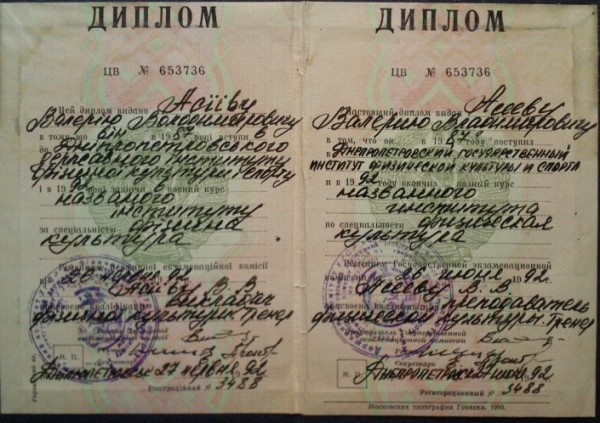 ДИПЛОМ
ЦВ № 653736
Цей диплом видано Асіїву
Валерію Володимировичу
в тому що він в 19 році вступи в
Дніпропетровського
державного інституту
фізичної культури і спорту
і в 19 92 році закінчи повний курс
названого
інституту
за спеціальністю фізична
культура
Рішенням Державної екзаменаційної комісії
Асіїву В. В.
викладач
фізичної культури. Тренер
М. П.
Дніпропетровськ 27 червня 92
Реєстраційний № 3488
ДИПЛОМ
ЦВ № 653736
Настоящий диплом выдан Асееву
Валерию Владимировичу
в том, что он в 19 году поступил в
Днепропетровский государственный
институт физической культуры и спорта
и в 19 92 году окончил полный курс
названного
института
по специальности физическая
культура
Решением Государственной экзаменационной
комиссии от июня 92
Асееву В. В.
присвоена квалификация преподаватель
физической культуры. Тренер
Председатель Государственной
экзаменационной комиссии
Секретарь
М. П.
Днепропетровск июня 92
Регистрационный № 3488
Московская типография Гознака. 1990.